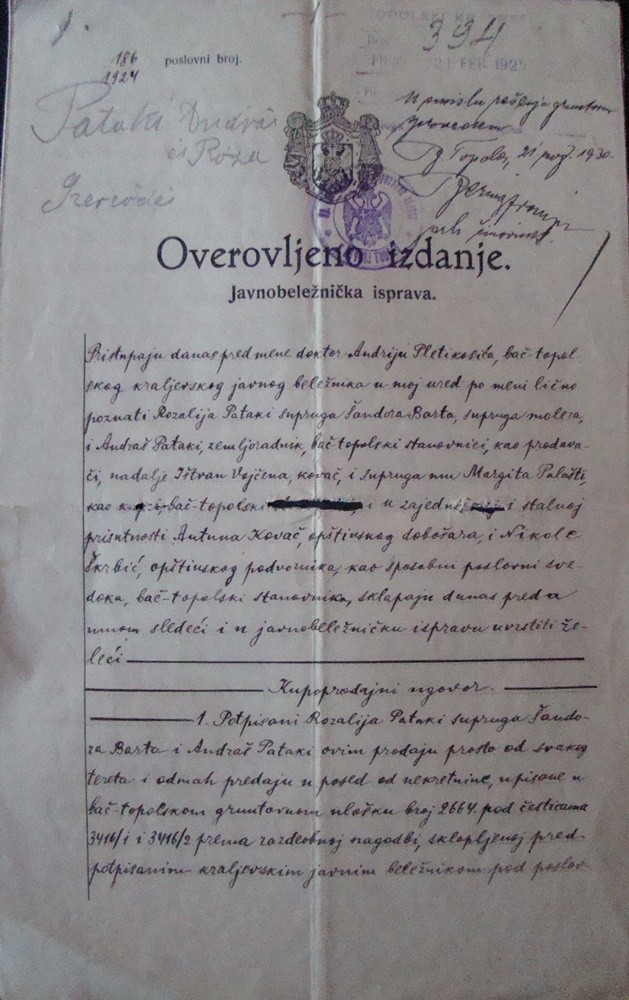 1.
394
186
1924
poslovni broj.
21 FEB. 1925
Pataki András
és Róza
U smislu rešenja
B. Topola, 21 1930.
Szerződés
Overovljeno izdanje.
Javnobeležnička isprava.
Pristupaju danas pred mene doktor Andriju Pletikosića, bač-topol-
skog kraljevskog javnog beležnika u moj ured po meni lično
poznati Rozalija Pataki supruga Šandora Barta, supruga molera,
i Andraš Pataki, zemljoradnik, bač-topolski stanovnici, kao prodava-
či, nadalje Ištvan Vojčena, kovač, i supruga mu Margita Palašti,
kao bač-topolski i u i stalnoj
prisutnosti Antuna Kovač, opštinskog dobošara, i Nikole
Škrbić, opštinskog podvornika, kao sposobni poslovni sve-
doka, bač-topolski stanovnika, sklapaju danas preda
mnom sledeći i u javnobeležničku ispravu uvrstiti že-
leći
Kupoprodajni ugovor.
1. Potpisani Rozalija Pataki supruga Šando-
ra Barta i Andraš Pataki ovim prodaju prosto od svakog
tereta i odmah predaju u posed od nekretnine, upisane u
bač-topolskom gruntovnom ulošku broj 2664. pod česticama
3416/1 i 3416/2 prema razdeobnoj nagodbi, sklopljenoj pred
potpisanim kraljevskim javnim beležnikom pod poslov-